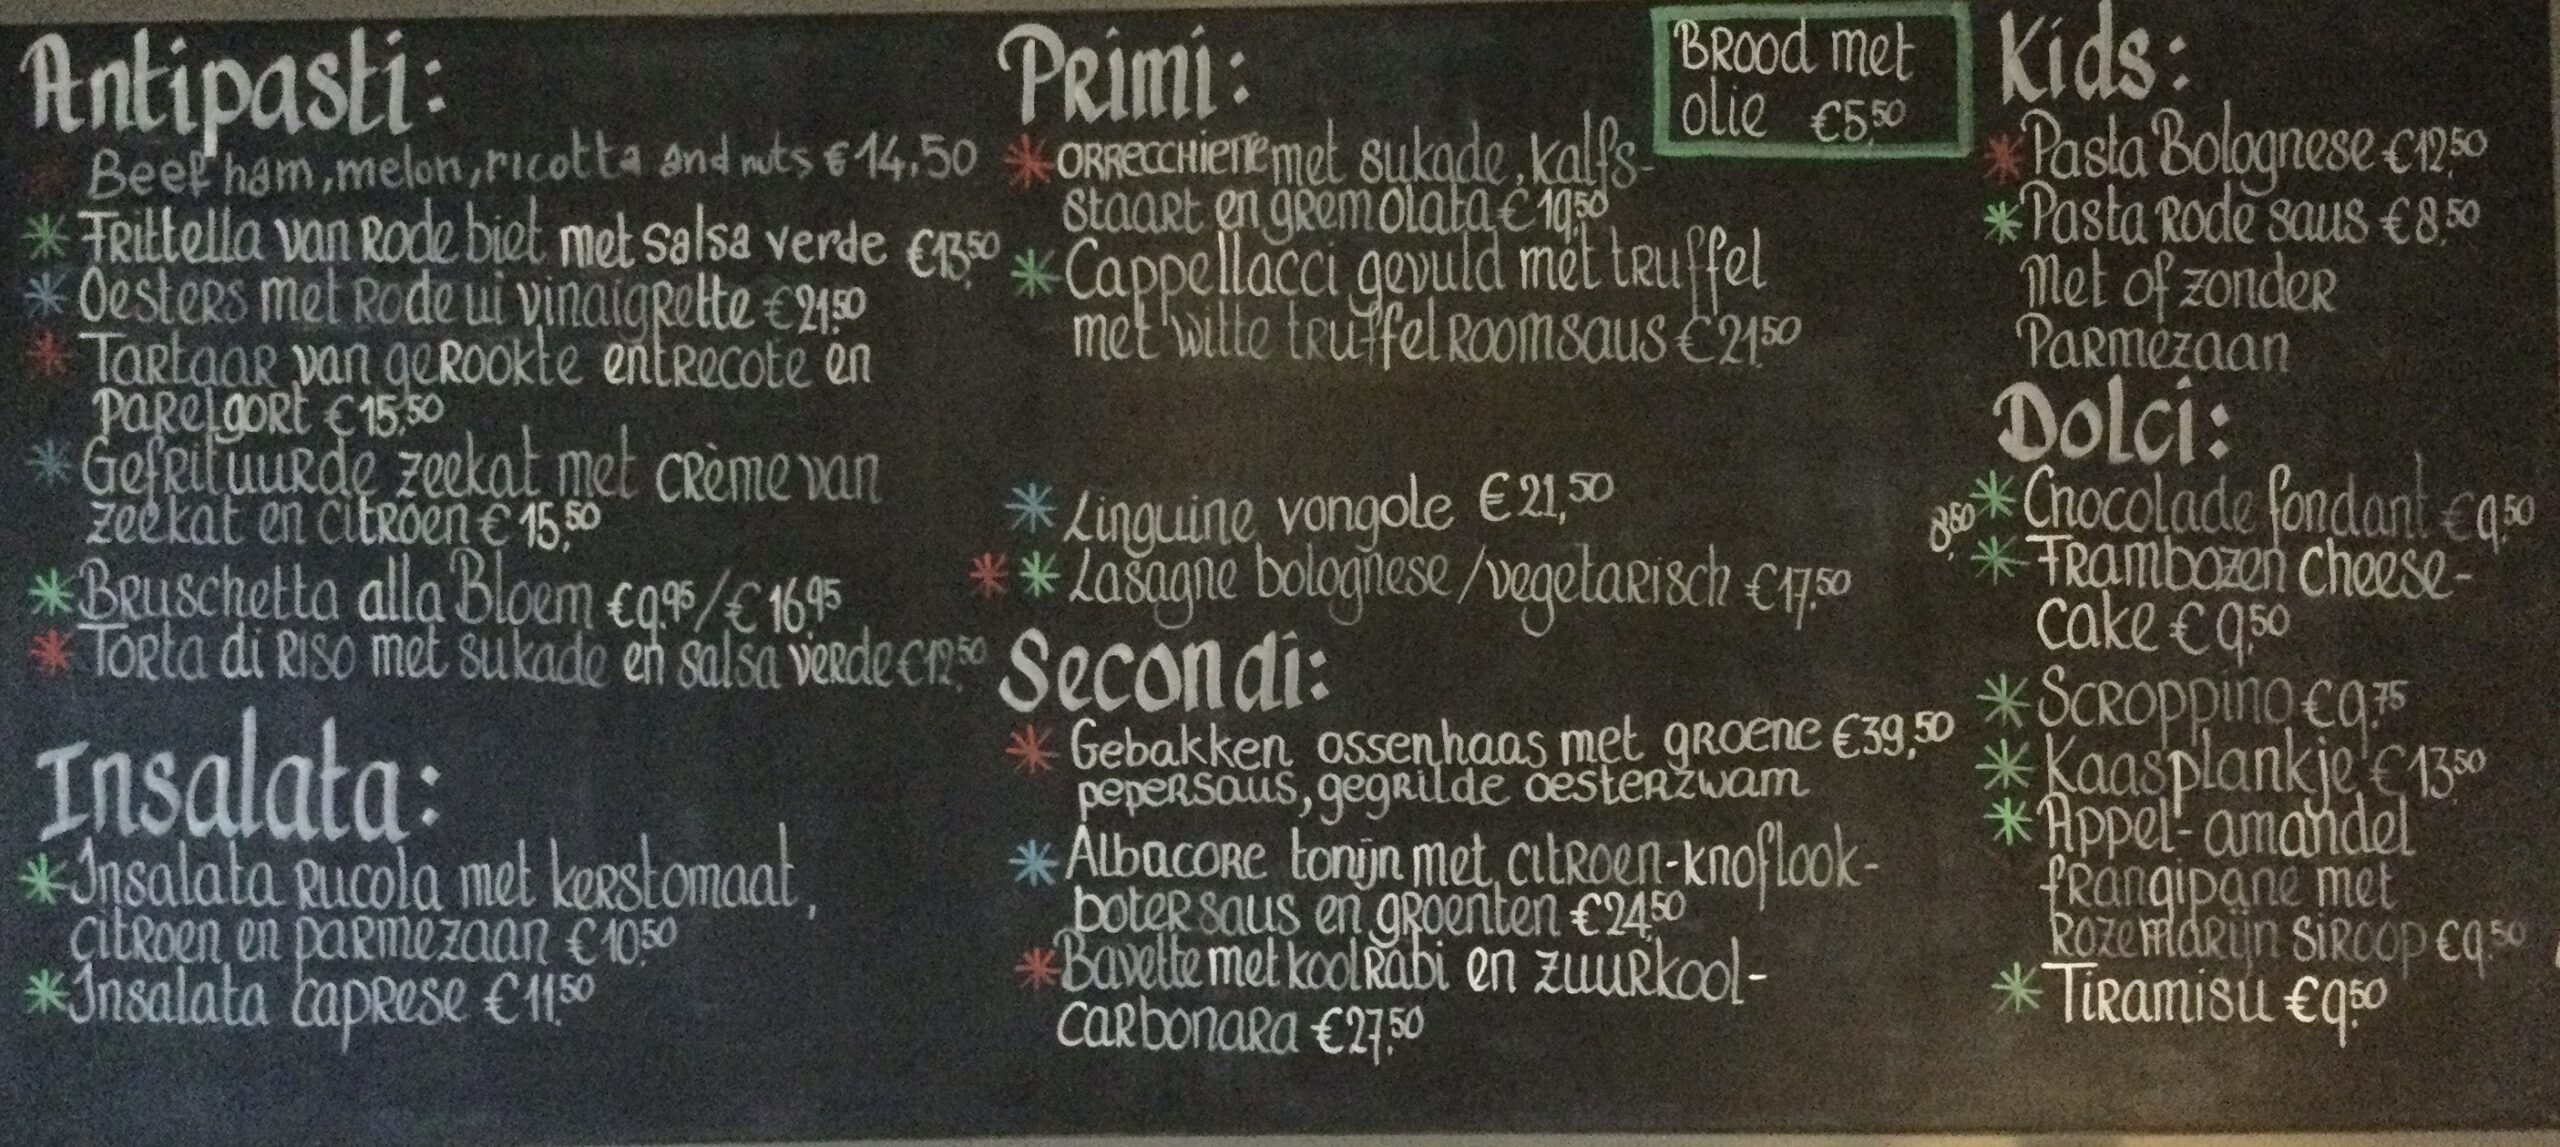 Antipasti:
Beef ham, melon, ricotta and nuts €14,50
Frittella van rode biet met salsa verde €13,50
Oesters met rode ui vinaigrette €21,50
Tartaar van gerookte entrecote en
parelgort €15,50
Gefrituurde zeekat met crème van
zeekat en citroen €15,50
Bruschetta alla Bloem €9,95/€16,95
Torta di riso met sukade en salsa verde €12,50
Insalata:
Insalata rucola met kerstomaat,
citroen en parmezaan €10,50
Insalata caprese €11,50
Primi:
orrecchiette met sukade, kalfs-
staart en gremolata €19,50
Cappellacci gevuld met truffel
met witte truffelroomsaus €21,50
Linguine vongole €21,50
Lasagne bolognese/vegetarisch €17,50
Secondi:
Gebakken ossenhaas met groene €39,50
pepersaus, gegrilde oesterzwam
Albacore tonijn met citroen-knoflook-
botersaus en groenten €24,50
Bavette met koolrabi en zuurkool-
carbonara €27,50
Brood met
olie €5,50
Kids:
Pasta Bolognese €12,50
Pasta rode saus €8,50
Met of zonder
Parmezaan
Dolci:
Chocolade fondant €9,50
8,50
Frambozen cheese-
cake €9,50
Scroppino €9,75
Kaasplankje €13,50
Appel-amandel
frangipane met
rozemarijn siroop €9,50
Tiramisu €9,50